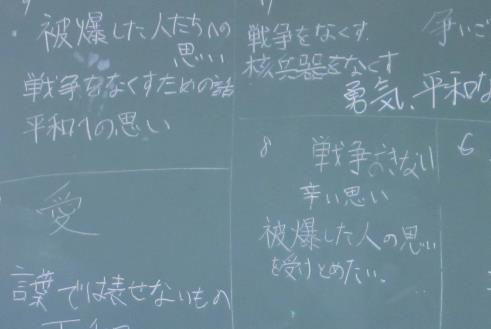 被爆した人たちへの
思い
戦争をなくすための話
平和への思い
愛
言葉では表せないもの
戦争をなくす
核兵器をなくす
勇気、平和な
争いご
8
戦争のきない
辛い思い
被爆した人の思い
を受けとめたい。
6